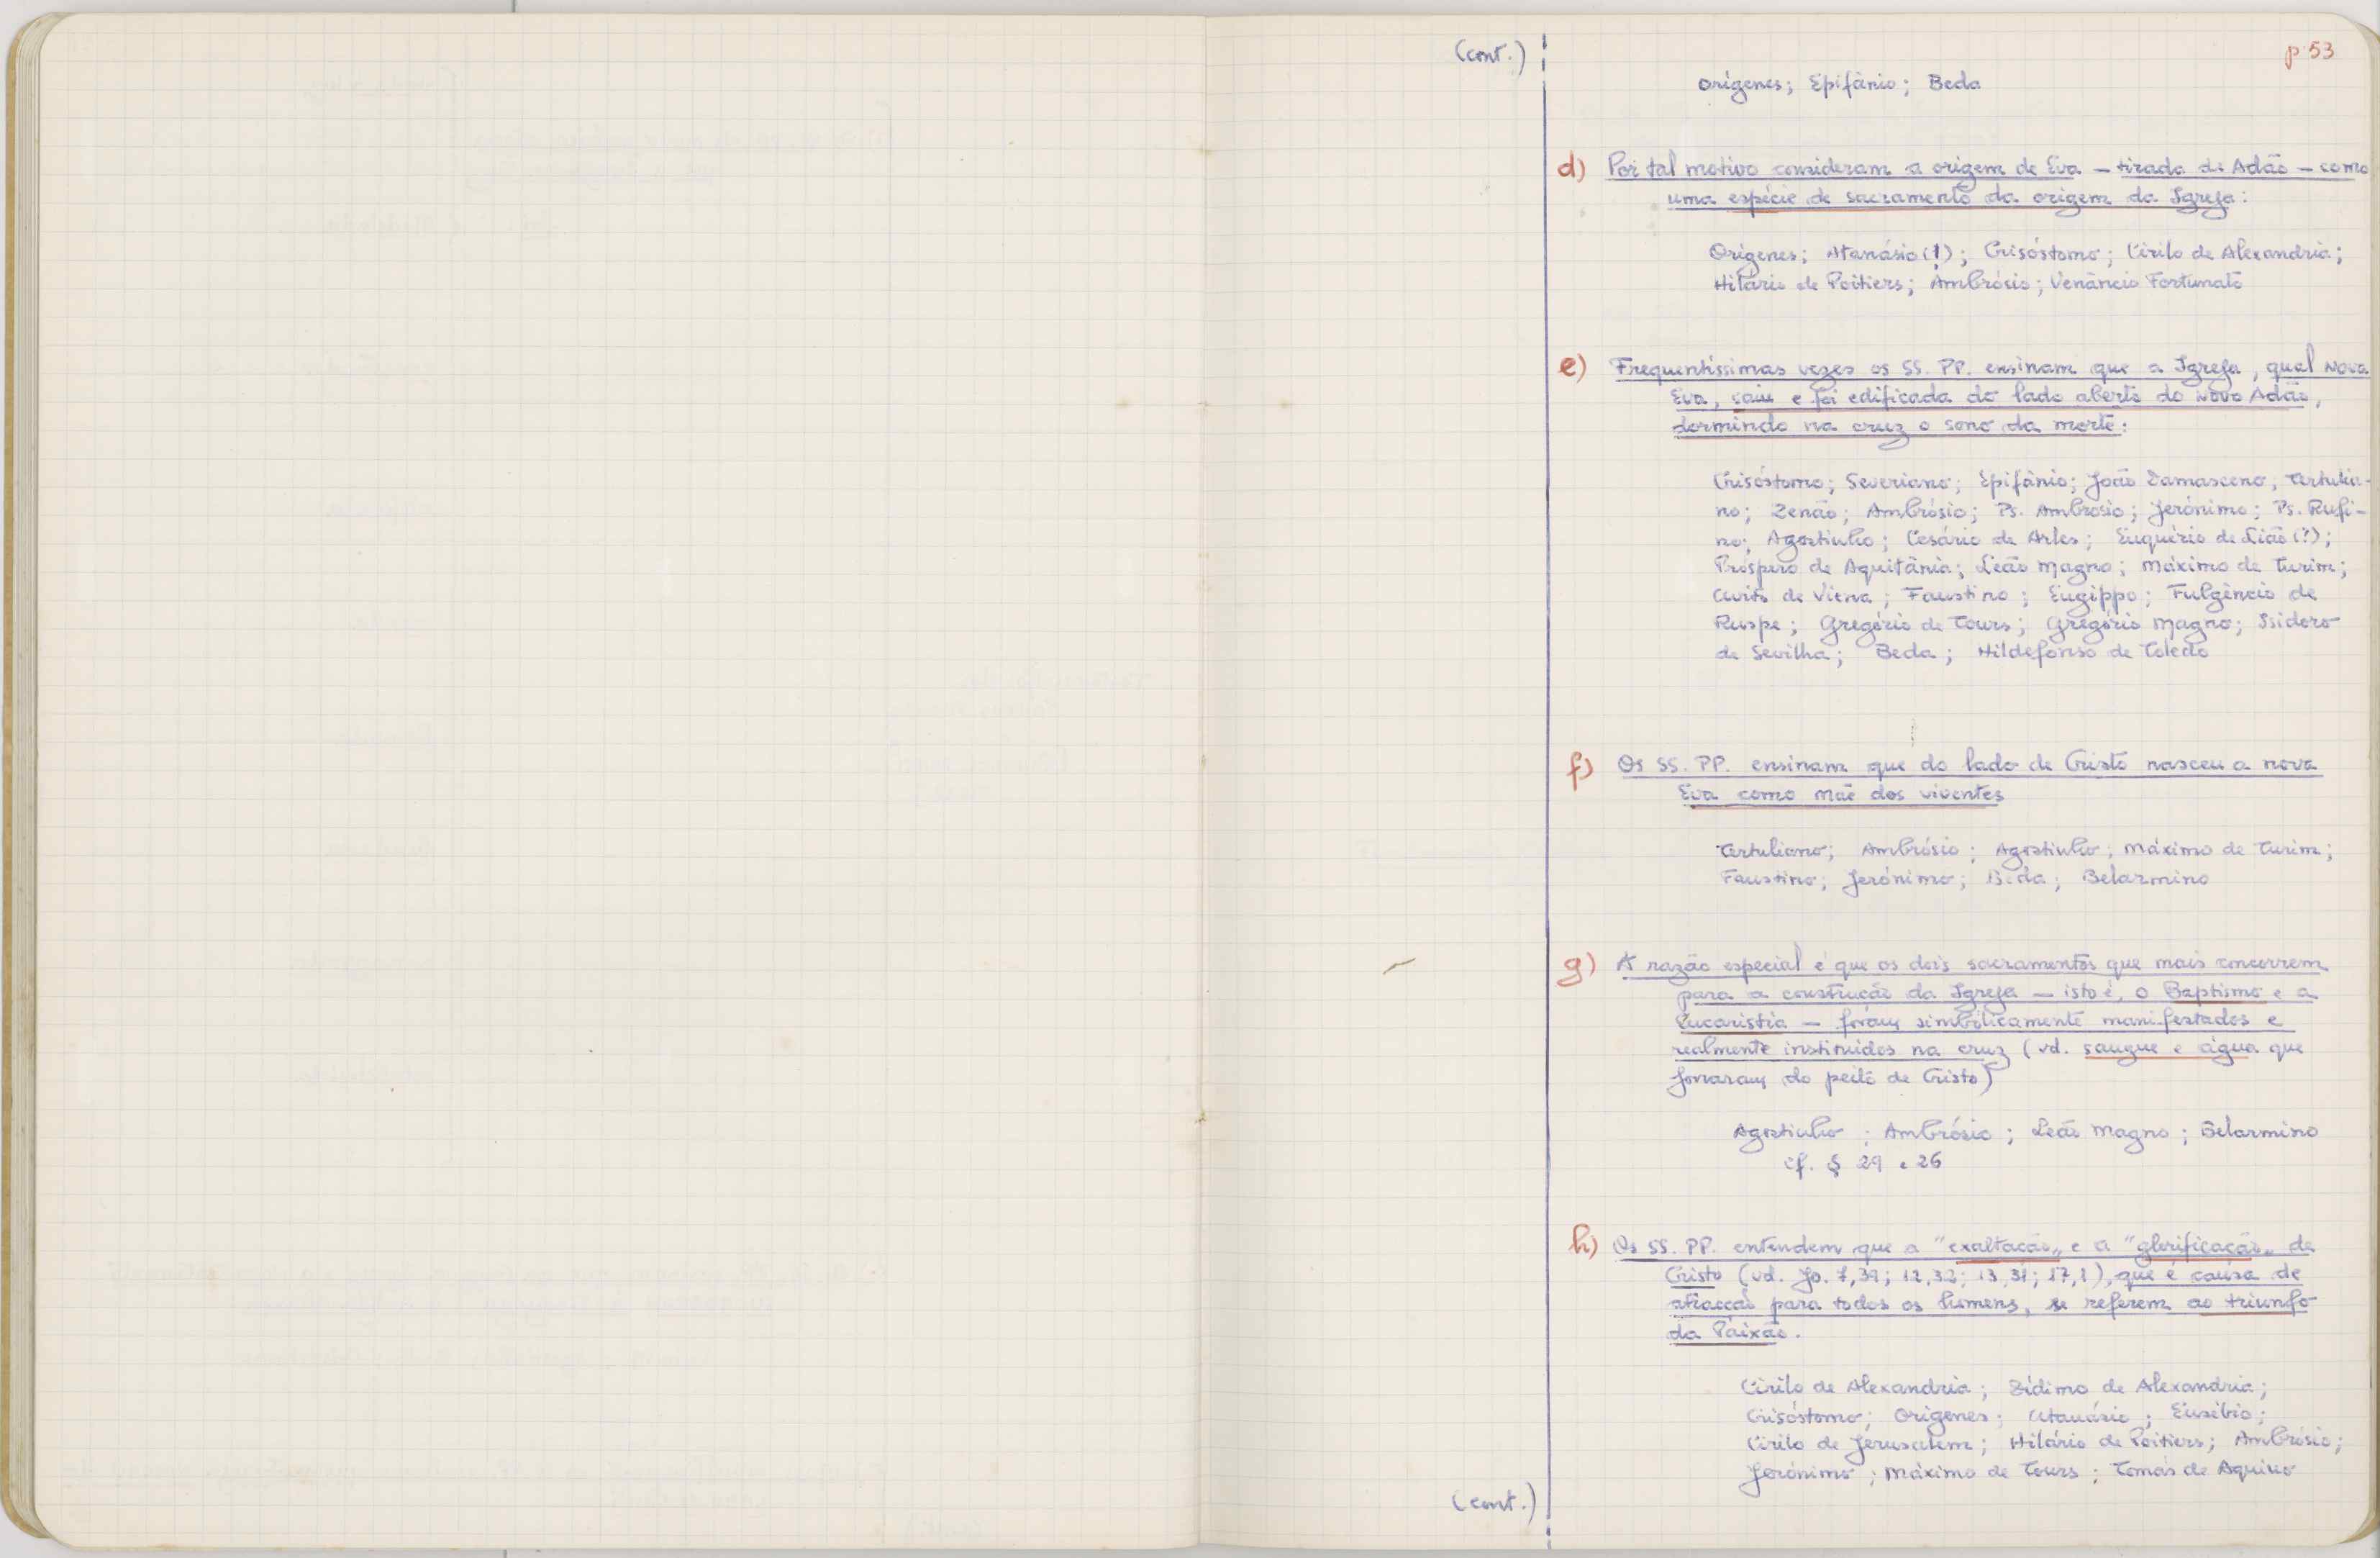 (cont.)
p. 53
Orígenes; Epifânio; Beda
d) Por tal motivo consideram a origem de Eva – tirada de Adão – como
uma espécie de sacramento da origem da Igreja:
Orígenes; Atanásio (?); Crisóstomo; Cirilo de Alexandria;
Hilário de Poitiers; Ambrósio; Venâncio Fortunato
e) Frequentíssimas vezes os SS. PP. ensinam que a Igreja, qual Nova
Eva, saiu e foi edificada do lado aberto do Novo Adão,
dormindo na cruz o sono da morte:
Crisóstomo; Severiano; Epifânio; João Damasceno; Tertulia-
no; Zenão; Ambrósio; Ps. Ambrósio; Jerónimo; Ps. Rufi-
no; Agostinho; Cesário de Arles; Euquério de Lião (?);
Próspero de Aquitânia; Leão Magno; Máximo de Turim;
Avito de Viena; Faustino; Eugippo; Fulgêncio de
Ruspe; Gregório de Tours; Gregório Magno; Isidoro
de Sevilha; Beda; Hildefonso de Toledo
f) Os SS. PP. ensinam que do lado de Cristo nasceu a nova
Eva como mãe dos viventes
Tertuliano; Ambrósio; Agostinho; Máximo de Turim;
Faustino; Jerónimo; Beda; Belarmino
g) A razão especial é que os dois sacramentos que mais concorrem
para a construção da Igreja – isto é, o Baptismo e a
Eucaristia – foram simbòlicamente manifestados e
realmente instituídos na cruz (vd. sangue e água que
jorraram do peito de Cristo)
Agostinho; Ambrósio; Leão Magno; Belarmino
cf. § 29 e 26
h) Os SS. PP. entendem que a "exaltação" e a "glorificação" de
Cristo (vd. Jo. 7,39; 12,32; 13,31; 17,1), que é causa de
atracção para todos os homens, se referem ao triunfo
da Paixão.
Cirilo de Alexandria; Dídimo de Alexandria;
Crisóstomo; Orígenes; Atanásio; Eusébio;
Cirilo de Jerusalem; Hilário de Poitiers; Ambrósio;
Jerónimo; Máximo de Tours; Tomás de Aquino
(cont.)